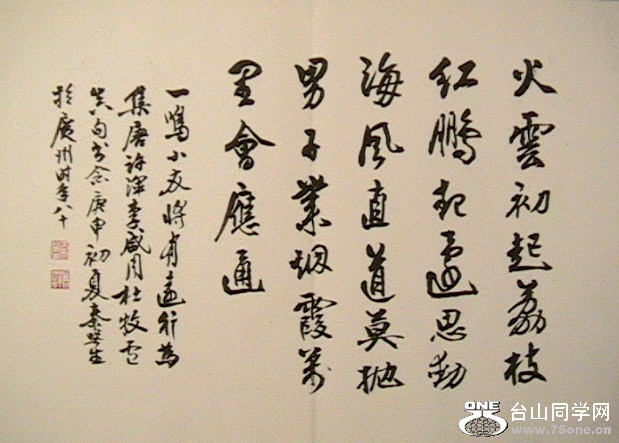 火雲初起荔枝
紅鵬起還思動
海風直道莫拋
男子業烟霞萬
里會應通
一鳴小友將有遠行為
集唐許渾李咸用杜牧
句書念庚申初夏秦咢生
於廣州時年八十
ONE 台山同学网
www.75one.cn